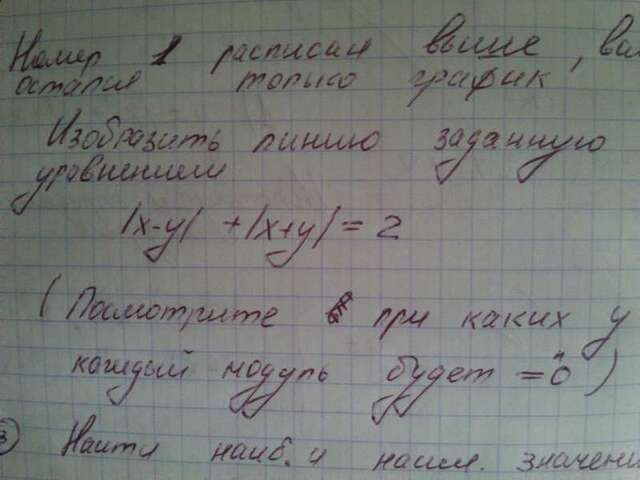 Номер 1 расписан выше, вам
остался только график
Изобразить линию заданную
уравнением
|x-y| + |x+y| = 2
(Посмотрите при каких y
каждый модуль будет =0)
Найти наиб. и наим. значени